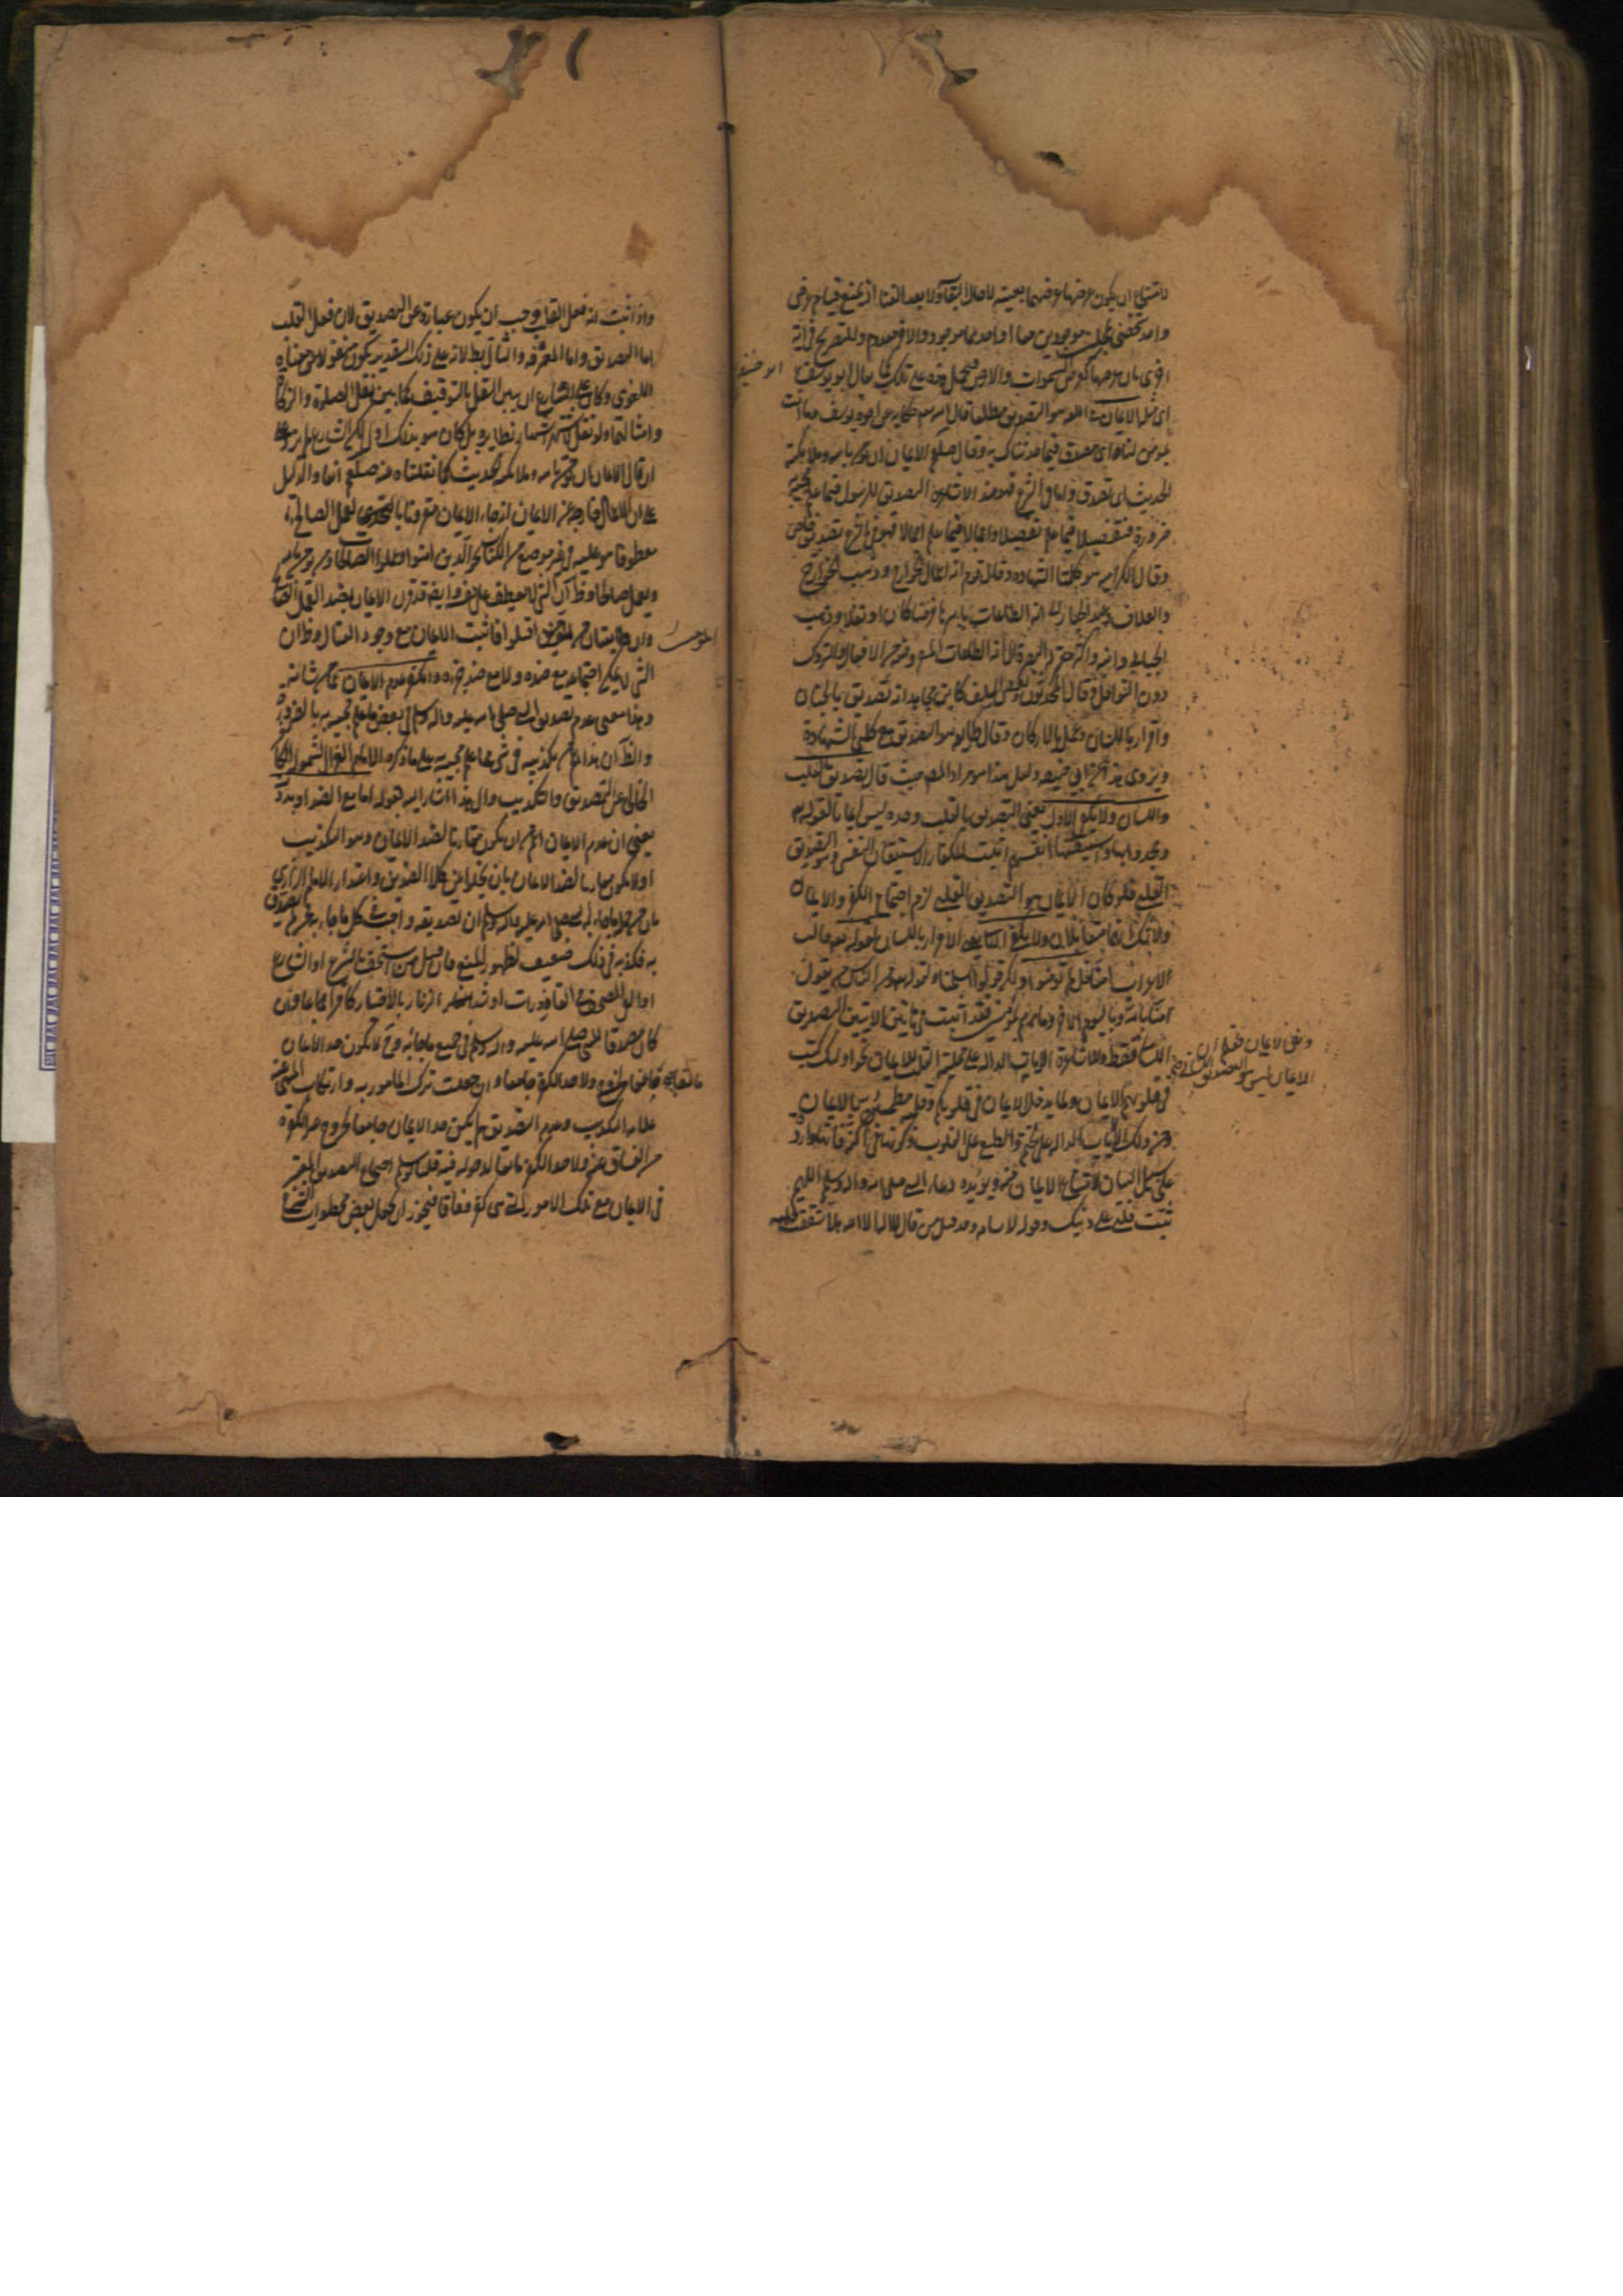 لامتناع ان يكون عرضها عرضهما بعينه لاحال البقاء ولا بعد الفناء اذ يمتنع قيام عرض
واحد شخصي بمحلين موجودين معا او احدهما موجود والآخر معدوم وللتصريح في آية
اخرى بان عرضها كعرض السموات والارض فيحمل هذه على تلك كما يقال ابو يوسف
ابو حنيفة
اى مثله الايمان في اللغة هو التصديق مطلقا قال حكاية عن اخوة يوسف وما انت
بمؤمن لنا اى بمصدق فيما حدثناك به وقال صلعم الايمان ان تؤمن بالله وملائكته
الحديث اى تصدق واما في الشرع فهو عند الاشاعرة التصديق للرسول فيما علم مجيئه
ضرورة فتفصيلا فيما علم تفصيلا واجمالا فيما علم اجمالا فهو في الشرع تصديق خاص
وقال الكرامية هو كلمتا الشهادة وقال قوم انه اعمال الجوارح وذهب الخوارج
والعلاف وعبد الجبار الى انه الطاعات باسرها فرضا كان او نفلا وذهب
الجبائى وابنه واكثر البصرية الى انه الطاعات المفروضة من الافعال والتروك
دون النوافل وقال المحدثون وبعض السلف كابن مجاهد انه تصديق بالجنان
واقرار باللسان وعمل بالاركان وقال طائفة هو التصديق مع كلمتي الشهادة
ويروى هذا عن ابي حنيفة ولعل هذا هو مراد المص حيث قال تصديق بالقلب
واللسان ولا يكفي الاول يعني التصديق بالقلب وحده ليس ايمانا لقوله تع
وجحدوا بها واستيقنتها انفسهم اثبت للكفار الاستيقان النفسي وهو التصديق
القلبي فلو كان الايمان هو التصديق القلبي لزم اجتماع الكفر والايمان
ولا شك انهما متقابلان ولا يكفي الثاني يعني الاقرار باللسان لقوله تع قالت
الاعراب آمنا قل لم تؤمنوا ولكن قولوا اسلمنا ولقوله تع ومن الناس من يقول
آمنا بالله وباليوم الآخر وما هم بمؤمنين فقد اثبت في هاتين الآيتين التصديق
اللساني فقط وللاشاعرة الآيات الدالة على محلية القلب للايمان نحو اولئك كتب
ونفى الايمان فعلم ان
الايمان ليس هو التصديق اللساني
في قلوبهم الايمان ولما يدخل الايمان في قلوبكم وقلبه مطمئن بالايمان
ومن ذلك الآيات الدالة على الختم والطبع على القلوب وكونها في اكنة فانها واردة
على سبيل البيان لامتناع الايمان منهم ويؤيده دعاء النبي صلى الله واله وسلم اللهم
ثبت قلبي على دينك وقوله لاسامة وقد قتل من قال لا اله الا الله هلا شققت قلبه
واذا ثبت انه فعل القلب وجب ان يكون عبارة عن التصديق لان فعل القلب
اما التصديق واما المعرفة والثاني باطل لانه على ذلك التقدير يكون منقولا عن معناه
اللغوي وكان على الشارع ان يبين النقل بالتوقيف كما بين نقل الصلوة والزكاة
وامثالهما ولو نقل لاشتهر اشتهار نظايره بل كان هو بذلك اولى
ان قال الايمان ان تؤمن بالله وملائكته الحديث كما نقلناه عنه صلعم آنفا والدليل
على ان الاعمال خارجة عن الايمان انه جاء الايمان مقرونا بالعمل الصالح
معطوفا هو عليه في غير موضع من الكتاب نحو الذين آمنوا وعملوا الصالحات ومن يؤمن بالله
ويعمل صالحا وظ ان الشئ لا يعطف على نفسه وايضا قد قرن الايمان بضد العمل الصالح
وان طائفتان من المؤمنين اقتتلوا فاثبت الايمان مع وجود القتال وظ ان
المؤمنين
الشئ لا يمكن اجتماعه مع ضده ولا مع ضد جزئه والكفر عدم الايمان عما من شانه
وهذا معنى عدم تصديق النبي صلى الله عليه واله وسلم في بعض ما علم مجيئه به بالضرورة
والظ ان هذا اعم من تكذيبه في شئ مما علم مجيئه به على ما ذكره الامام الغزالي لشموله الكافر
الخالي عن التصديق والتكذيب والى هذا اشار اليه بقوله اما مع الضد او بدونه
يعني ان عدم الايمان اعم من ان يكون مقارنا لضد الايمان وهو التكذيب
او لا يكون مقارنا لضد الايمان بان يخلو عن كلا الضدين واعتذار الامام الرازي
بان من جملة ما جاء به النبي صلى الله عليه واله وسلم ان تصديقه واجب في كل ما جاء به فمن لم يصدق
به فكذبه في ذلك ضعيف لظهور المنع فان قيل من استخف بالشرع او الشارع
او القى المصحف في القاذورات او شد الزنار بالاختيار كافر اجماعا وان
كان مصدقا للنبي صلى الله عليه واله وسلم في جميع ما جاء به وح لا يكون حد الايمان
مانعا ولا حد الكفر جامعا وان جعلت ترك المأمور به وارتكاب المنهي عنه
علامة التكذيب وعدم التصديق لم يكن حد الايمان جامعا لخروج
من الفساق عنه ولا حد الكفر مانعا لدخوله فيه قلنا لو سلم اجتماع التصديق المعتبر
في الايمان مع تلك الامور التي هي كفر وفاقا فيجوز ان يجعل بعض محظورات الشرع